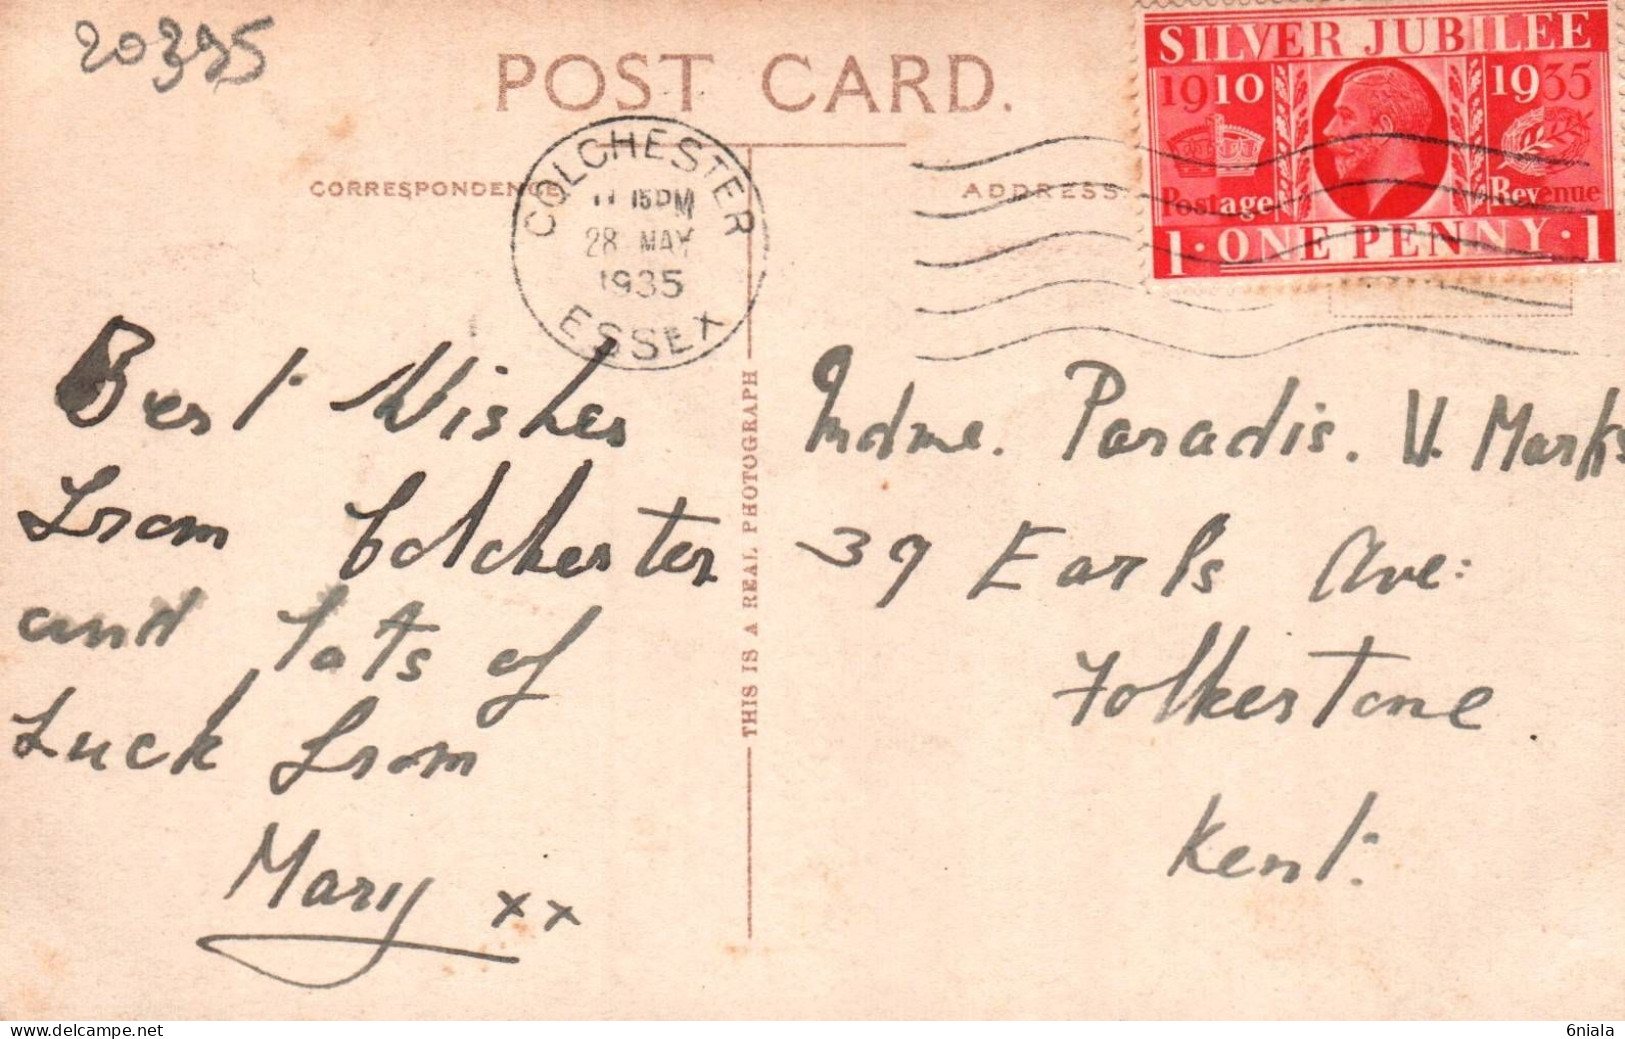 20395
POST CARD.
CORRESPONDENCE
ADDRESS
SILVER JUBILEE
1910 1935
Postage Revenue
1 · ONE PENNY · 1
COLCHESTER
11 15 PM
28 MAY
1935
ESSEX
Best Wishes
from Colchester
and lots of
Luck from
Mary xx
THIS IS A REAL PHOTOGRAPH
Mdme. Paradis. V. Marks
39 Earls Ave:
Folkestone
Kent.
6niala
delcampe.net